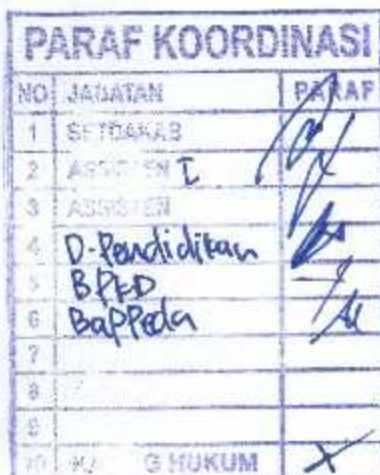 PARAF KOORDINASI
NO JABATAN PARAF
1 SETDAKAB
2 ASSISTEN I
3 ASSISTEN
4 D. Pendidikan
5 BPKD
6 Bappeda
7
8
9
10 G HUKUM